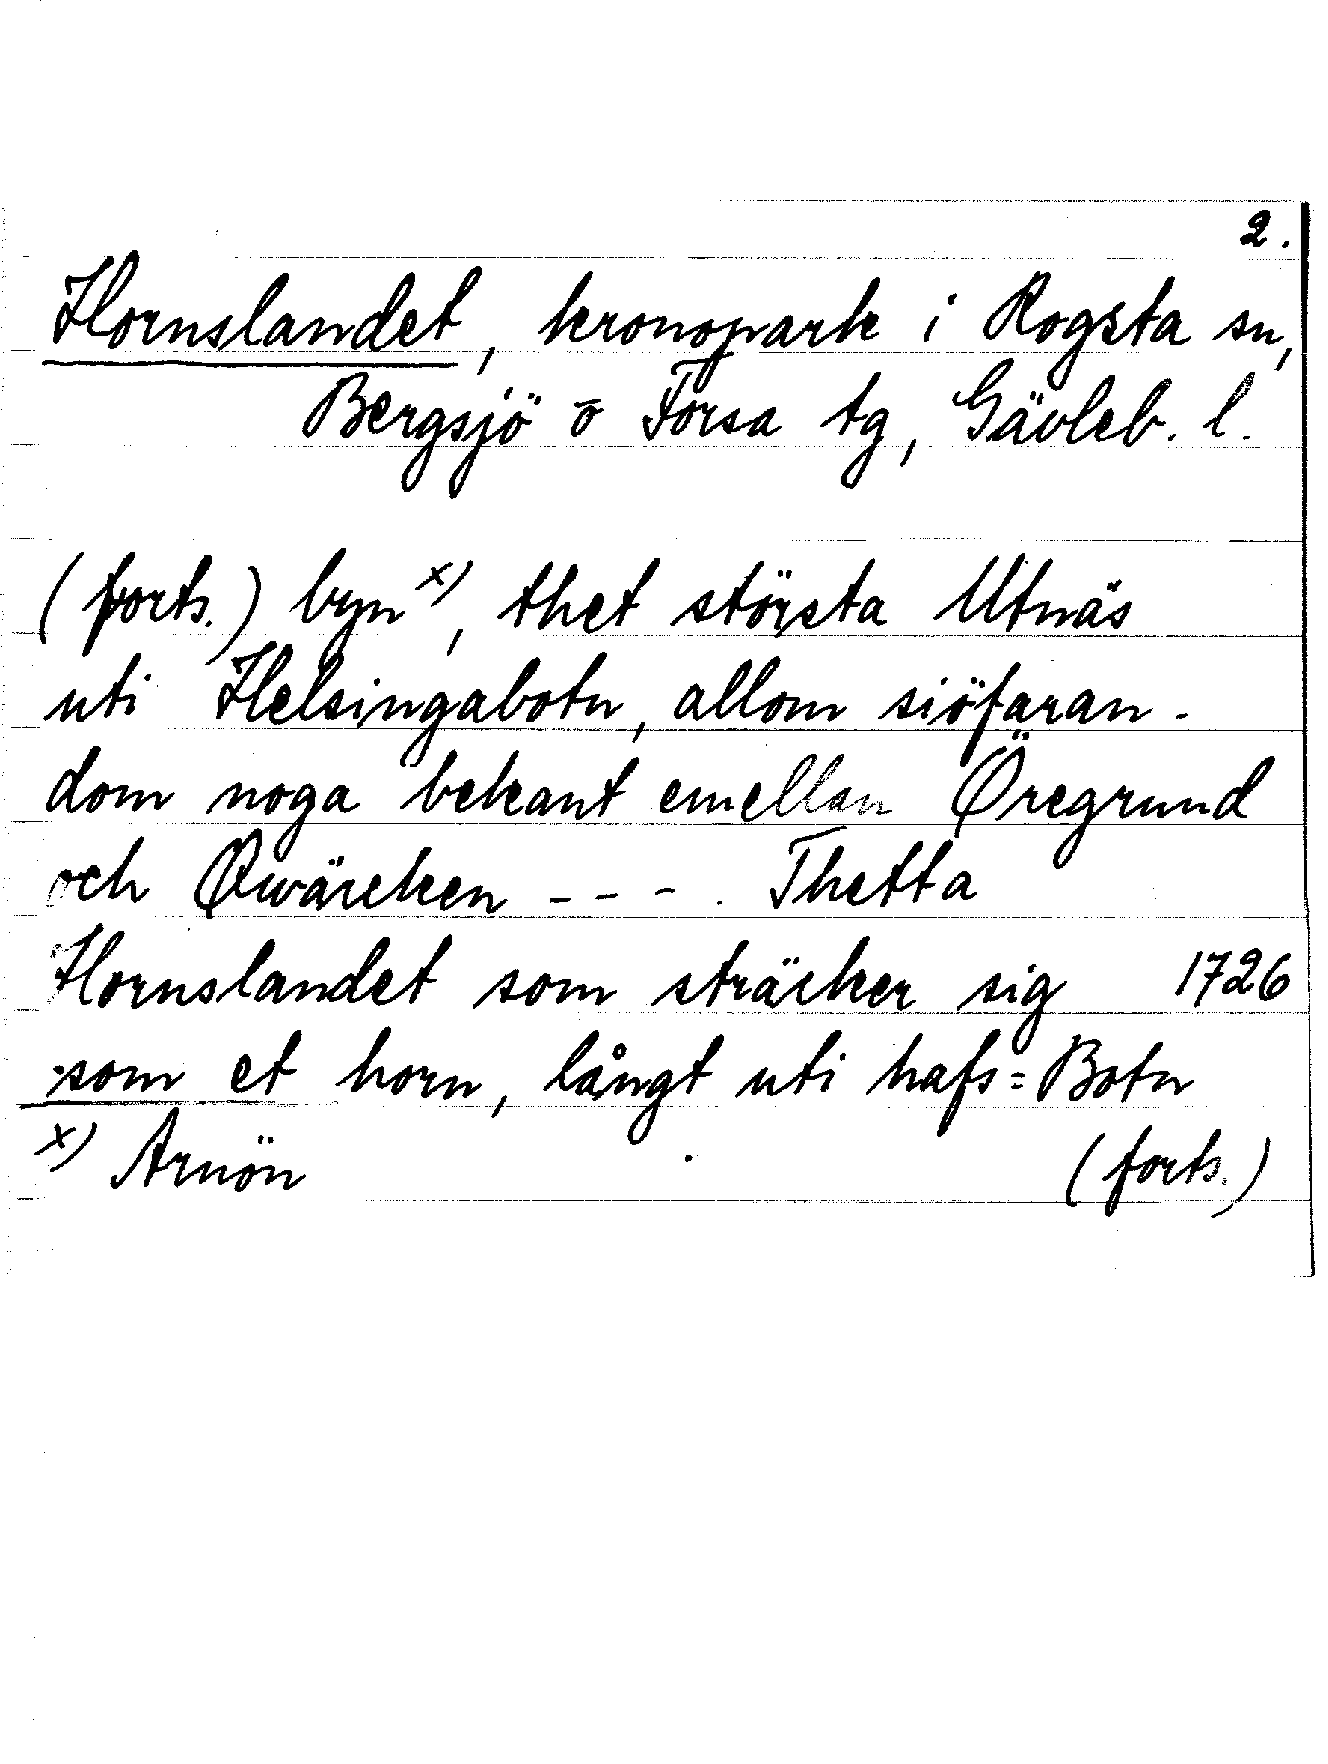 2.
Hornslandet, kronopark i Rogsta sn,
Bergsjö o Forsa tg, Gävleb. l.
(forts.) byn x), thet största Utnäs
uti Helsingabotn, allom siöfaran-
dom noga bekant emellan Öregrund
och Qwärcken - - - . Thetta
Hornslandet som sträcker sig 1726
som et horn, långt uti hafs=Botn
x) Arnön (forts.)